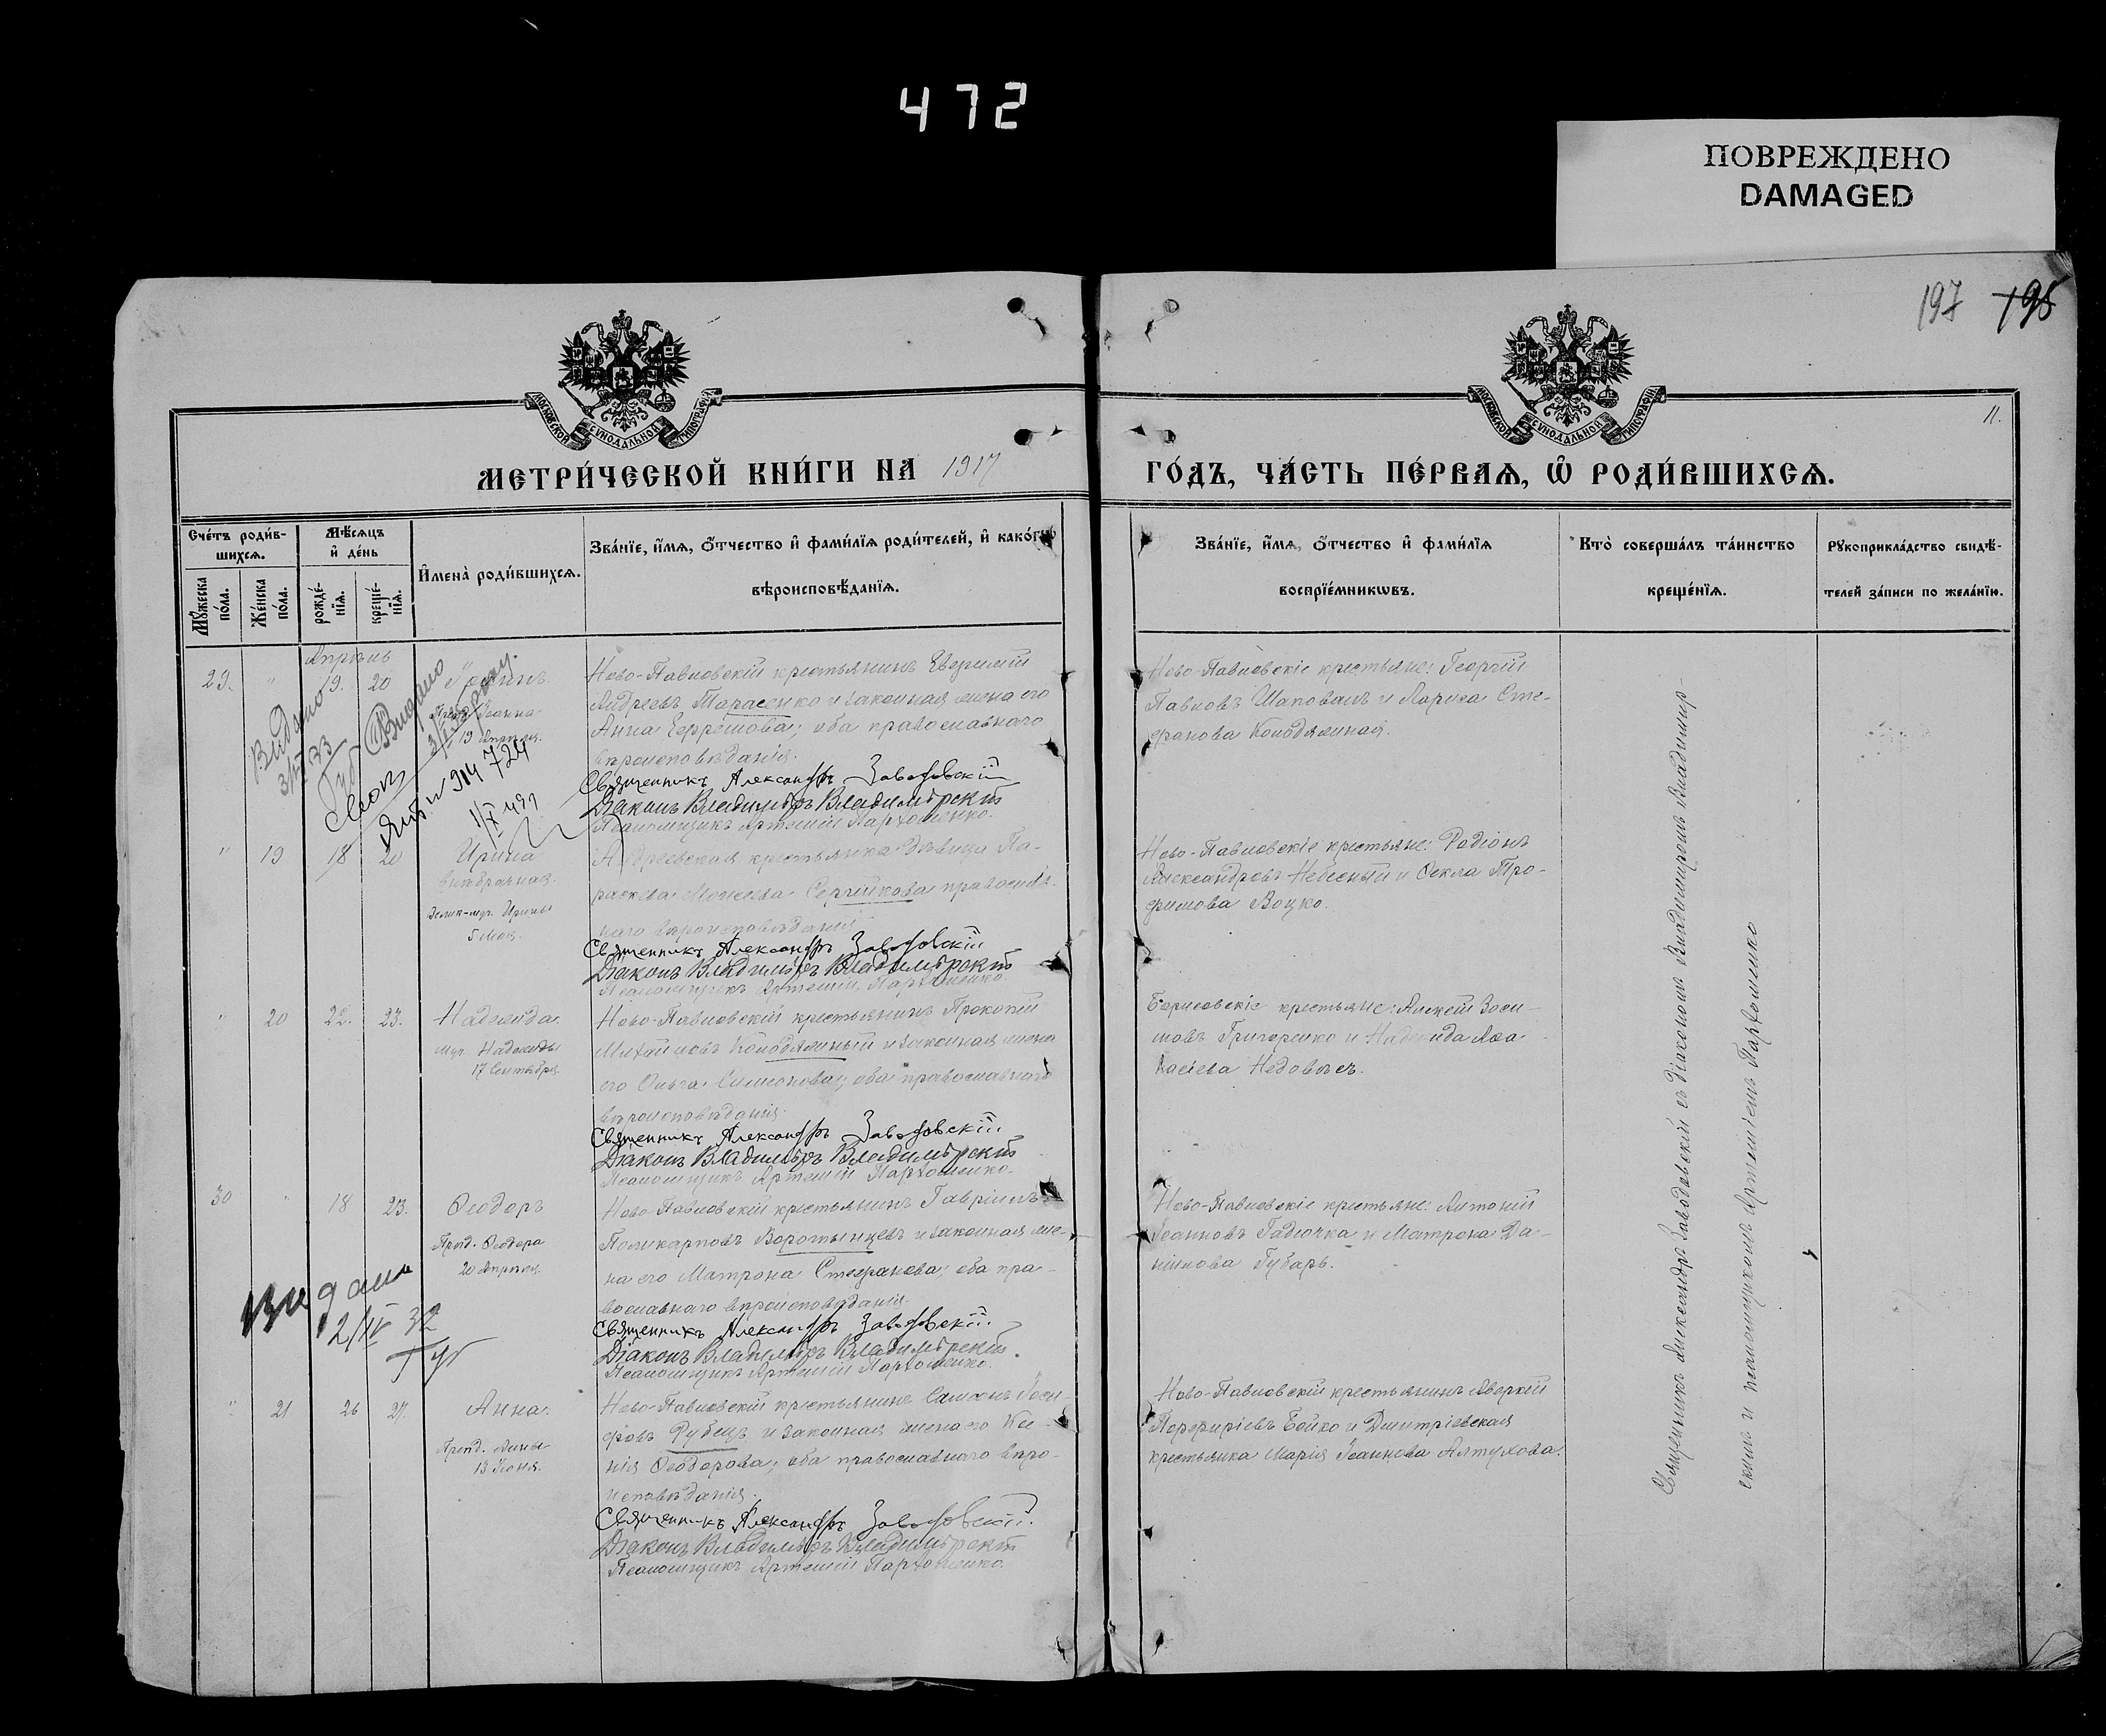 472
ПОВРЕЖДЕНО
DAMAGED
197 195
МОСКОВСКОЙ СѴНОДАЛЬНОЙ ТИПОГРАФІИ
МОСКОВСКОЙ СѴНОДАЛЬНОЙ ТИПОГРАФІИ
11.
МЕТРИ́ЧЕСКОЙ КНИ́ГИ НА 1917
ГО́ДЪ, ЧА́СТЬ ПЕ́РВАѦ, Ѽ РОДИ́ВШИХСѦ.
Сче́тъ роди́в-
шихсѧ.
Мѣ́сѧцъ
и҆ де́нь
Мꙋ́жеска
по́ла.
Же́нска
по́ла.
рожде́-
нїѧ.
креще́-
нїѧ.
И҆мена̀ роди́вшихсѧ.
Зва́нїе, и҆́мѧ, ѻ҆́тчество и҆ фами́лїѧ роди́телей, и҆ како́гѡ
вѣроисповѣ́данїѧ.
Зва́нїе, и҆́мѧ, ѻ҆́тчество и҆ фами́лїѧ
воспрїе́мникѡвъ.
Кто̀ соверша́лъ та́инство
креще́нїѧ.
Рꙋкоприкла́дство свидѣ́-
телей за́писи по жела́нїю.
Апрѣль
29. " 19. 20
19 Апрѣля.
Ново-Павловскій крестьянинъ Евѳимій
Андреевъ Тарасенко и законная жена его
Анна; оба православнаго
вѣроисповѣданія.
Священникъ Александръ Заводовскій
Діаконъ Владиміръ Владимірскій
Псаломщикъ Артемій Пархоменко.
Ново-Павловскіе крестьяне: Георгій
Павловъ Шаповалъ и Лариса Сте-
фанова Колодяжная.
Видано
Видано
724
" 19 18 20 Ирина
внѣбрачная.
Велик-муч. Ирины
5 Мая.
Андреевская крестьянка дѣвица Па-
раскева Моисеева Сергійкова православ-
наго вѣроисповѣданія
Священникъ Александръ Заводовскій
Діаконъ Владиміръ Владимірскій
Псаломщикъ Артемій Пархоменко
Ново-Павловскіе крестьяне: Родіонъ
Александровъ Небесный и Ѳекла Тро-
фимова Воцко.
" 20 22. 23. Надежда.
муч. Надежды
17 Сентября.
Ново-Павловскій крестьянинъ Прокопій
Михайловъ Колодяжный и законная жена
его Ольга Симеонова; оба православнаго
вѣроисповѣданія.
Священникъ Александръ Заводовскій
Діаконъ Владиміръ Владимірскій
Псаломщикъ Артемій Пархоменко.
Борисовскіе крестьяне: Алексѣй Зоси-
мовъ Григоренко и Надежда Аѳа-
насіева
30 " 18 23. Ѳеодоръ
Преп. Ѳеодора
20 Апрѣля.
Ново-Павловскій крестьянинъ Гавріилъ
Поликарповъ Воротынцевъ и законная же-
на его Матрона Стефанова; оба пра-
вославнаго вѣроисповѣданія.
Священникъ Александръ Заводовскій
Діаконъ Владиміръ Владимірскій.
Псаломщикъ Артемій Пархоменко.
Ново-Павловскіе крестьяне: Антоній
Іоанновъ Гадючка и Матрона Да-
нилова Губарь.
Видано
2/IV 32
" 21 26 27. Анна.
Преп. Анны
13 Іюня.
Ново-Павловскій крестьянинъ Симеонъ Іоси-
фовъ Рубецъ и законная жена его Ксе-
нія Ѳеодорова; оба православнаго вѣро-
исповѣданія.
Священникъ Александръ Заводовскій.
Діаконъ Владиміръ Владимірскій
Псаломщикъ Артемій Пархоменко.
Ново-Павловскій крестьянинъ Аверкій
Порфиріевъ Бойко и Дмитріевская
крестьянка Марія Іоаннова Алтухова.
Священникъ Александръ Заводовскій съ діакономъ Владиміромъ Владимір-
скимъ и псаломщикомъ Артеміемъ Пархоменко